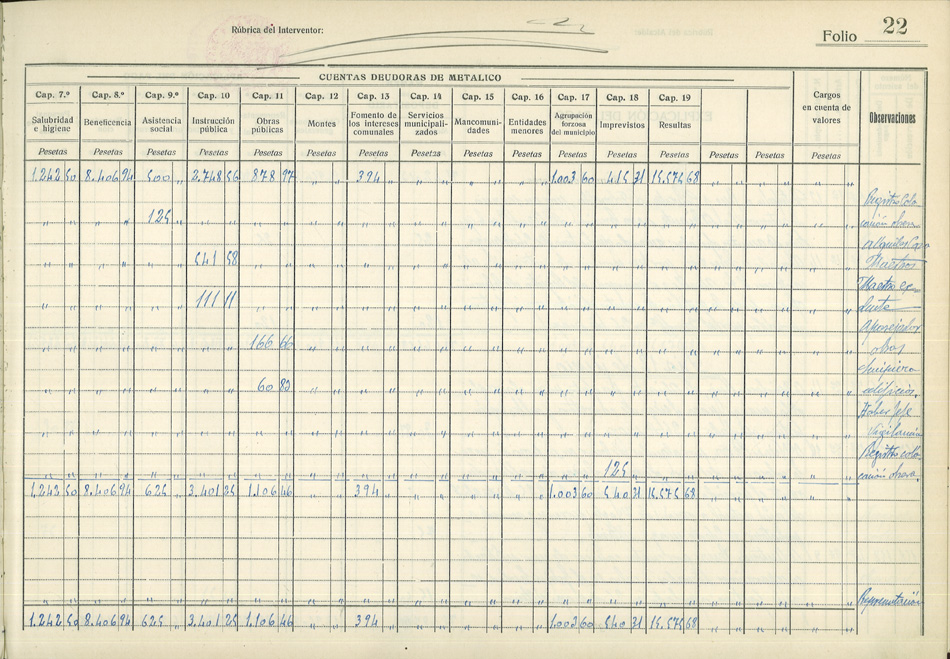 Rúbrica del Interventor:
Folio 22
CUENTAS DEUDORAS DE METALICO
Cap. 7.º Cap. 8.º Cap. 9.º Cap. 10 Cap. 11 Cap. 12 Cap. 13 Cap. 14 Cap. 15 Cap. 16 Cap. 17 Cap. 18 Cap. 19 Cargos en cuenta de valores Observaciones
Salubridad e higiene Beneficencia Asistencia social Instrucción pública Obras públicas Montes Fomento de los intereses comunales Servicios municipalizados Mancomunidades Entidades menores Agrupación forzosa del municipio Imprevistos Resultas
Pesetas Pesetas Pesetas Pesetas Pesetas Pesetas Pesetas Pesetas Pesetas Pesetas Pesetas Pesetas Pesetas Pesetas Pesetas Pesetas
1.242 50 8.406 94 500 " 2.748 56 878 97 " " 394 " " " " " " " 1.003 60 415 31 15.575 68
Registro Colo
125 cación obrera
alquiler Casa
541 58 Maestros
Maestro
111 11
Aparejador
166 66 obras
limpieza
60 83 edificios
Haber Jefe
Vigilancia
Registro colo
125 cación obrera
1.242 50 8.406 94 625 " 3.401 25 1.106 46 " " 394 " " " " " " " 1.003 60 540 31 15.575 68
Representación
1.242 50 8.406 94 625 " 3.401 25 1.106 46 " " 394 " " " " " " " 1.003 60 540 31 15.575 68